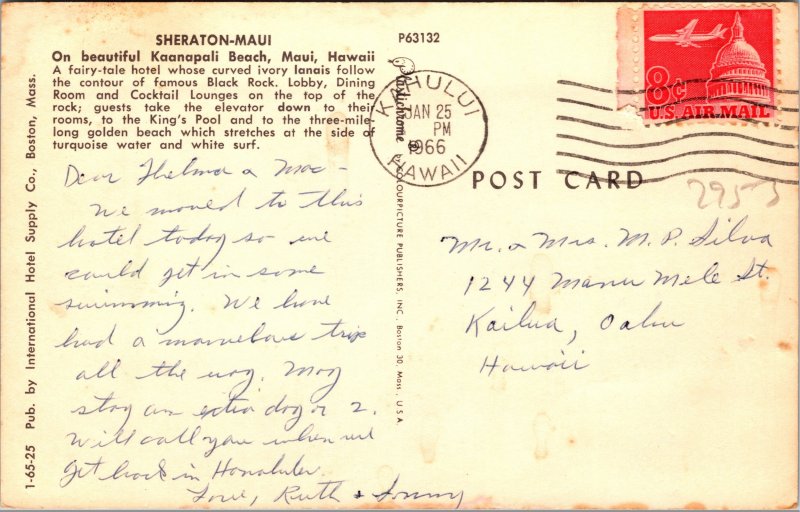 SHERATON-MAUI
On beautiful Kaanapali Beach, Maui, Hawaii
A fairy-tale hotel whose curved ivory lanais follow
the contour of famous Black Rock. Lobby, Dining
Room and Cocktail Lounges on the top of the
rock; guests take the elevator down to their
rooms, to the King's Pool and to the three-mile-
long golden beach which stretches at the side of
turquoise water and white surf.
Dear Thelma & Mac -
We moved to this
hotel today so we
could get in some
swimming. We have
had a marvelous trip
all the way. May
stay an extra day or 2.
Will call you when we
get back in Honolulu.
Love, Ruth & Sonny
1-65-25 Pub. by International Hotel Supply Co., Boston, Mass.
P63132
Plastichrome ® by COLOURPICTURE PUBLISHERS, INC. Boston 30, Mass., U.S.A.
KAHULUI
JAN 25
PM
1966
HAWAII
8c
U.S. AIR MAIL
POST CARD
2955
Mr. & Mrs. M. P. Silva
1244 Manu Mele St.
Kailua, Oahu
Hawaii